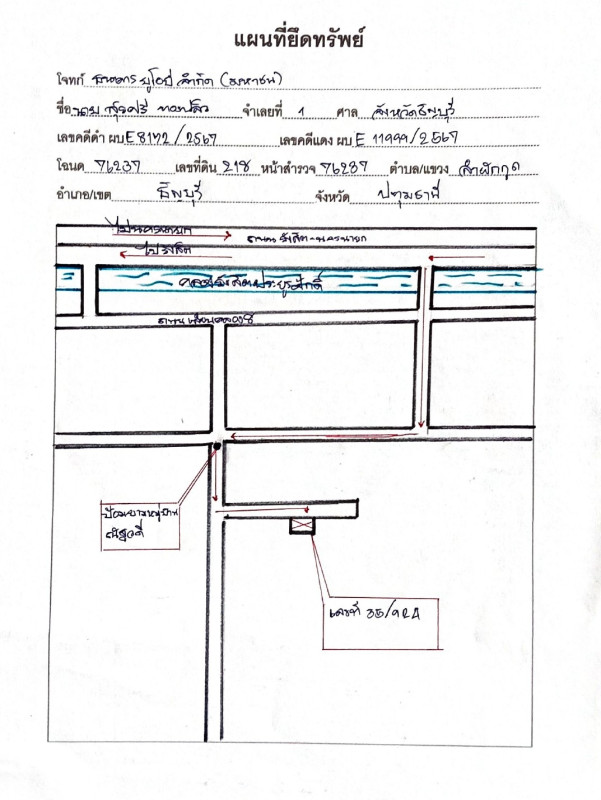 แผนที่ยึดทรัพย์
โจทก์ ธนาคาร ยูโอบี จำกัด (มหาชน)
ชื่อ นาย สุรศรี จำเลยที่ 1 ศาล จังหวัดธัญบุรี
เลขคดีดำ ผบ E 8172/2567 เลขคดีแดง ผบ E 11999/2567
โฉนด 76237 เลขที่ดิน 218 หน้าสำรวจ 76287 ตำบล/แขวง ลำผักกูด
อำเภอ/เขต ธัญบุรี จังหวัด ปทุมธานี
ไปนครนายก
ถนน รังสิต-นครนายก
ไปรังสิต
คลองรังสิตประยูรศักดิ์
ถนน เลียบคลอง
ป้อมยามหมู่บ้าน
เลขที่ 35/924